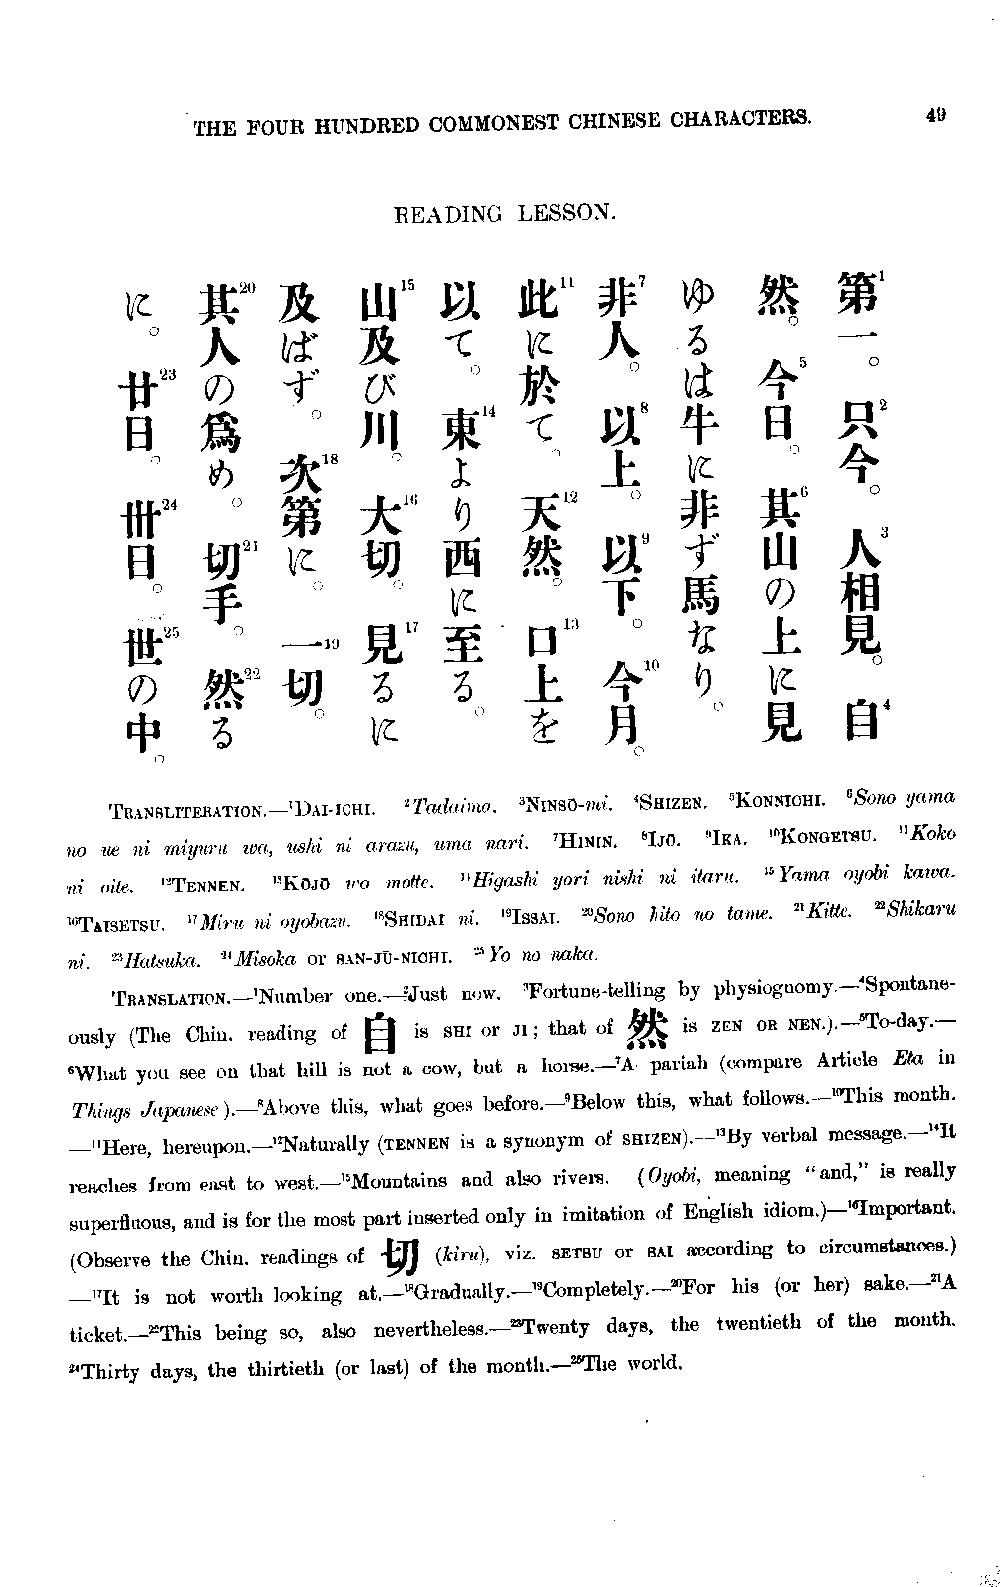 THE FOUR HUNDRED COMMONEST CHINESE CHARACTERS. 49
READING LESSON.
第¹一。只²今。人³相見。自⁴
然。今⁵日。其⁶山の上に見
ゆるは牛に非ず馬なり。
非⁷人。以⁸上。以⁹下。今¹⁰月。
此¹¹に於て。天¹²然。口¹³上を
以て。東¹⁴より西に至る。
山¹⁵及び川。大¹⁶切。見¹⁷るに
及ばず。次¹⁸第に。一¹⁹切。
其²⁰人の爲め。切²¹手。然²²る
に。廿²³日。卅²⁴日。世²⁵の中。
TRANSLITERATION.—¹DAI-ICHI. ²Tadaima. ³NINSŌ-mi. ⁴SHIZEN. ⁵KONNICHI. ⁶Sono yama
no ue ni miyuru wa, ushi ni arazu, uma nari. ⁷HININ. ⁸IJŌ. ⁹IKA. ¹⁰KONGETSU. ¹¹Koko
ni oite. ¹²TENNEN. ¹³KŌJŌ wo motte. ¹⁴Higashi yori nishi ni itaru. ¹⁵Yama oyobi kawa.
¹⁶TAISETSU. ¹⁷Miru ni oyobazu. ¹⁸SHIDAI ni. ¹⁹ISSAI. ²⁰Sono hito no tame. ²¹Kitte. ²²Shikaru
ni. ²³Hatsuka. ²⁴Misoka or SAN-JŪ-NICHI. ²⁵Yo no naka.
TRANSLATION.—¹Number one.—²Just now. ³Fortune-telling by physiognomy.—⁴Spontane-
ously (The Chin. reading of 自 is SHI or JI; that of 然 is ZEN OR NEN.).—⁵To-day.—
⁶What you see on that hill is not a cow, but a horse.—⁷A pariah (compare Article Eta in
Things Japanese).—⁸Above this, what goes before.—⁹Below this, what follows.—¹⁰This month.
—¹¹Here, hereupon.—¹²Naturally (TENNEN is a synonym of SHIZEN).—¹³By verbal message.—¹⁴It
reaches from east to west.—¹⁵Mountains and also rivers. (Oyobi, meaning "and," is really
superfluous, and is for the most part inserted only in imitation of English idiom.)—¹⁶Important.
(Observe the Chin. readings of 切 (kiru), viz. SETSU or SAI according to circumstances.)
—¹⁷It is not worth looking at.—¹⁸Gradually.—¹⁹Completely.—²⁰For his (or her) sake.—²¹A
ticket.—²²This being so, also nevertheless.—²³Twenty days, the twentieth of the month.
²⁴Thirty days, the thirtieth (or last) of the month.—²⁵The world.